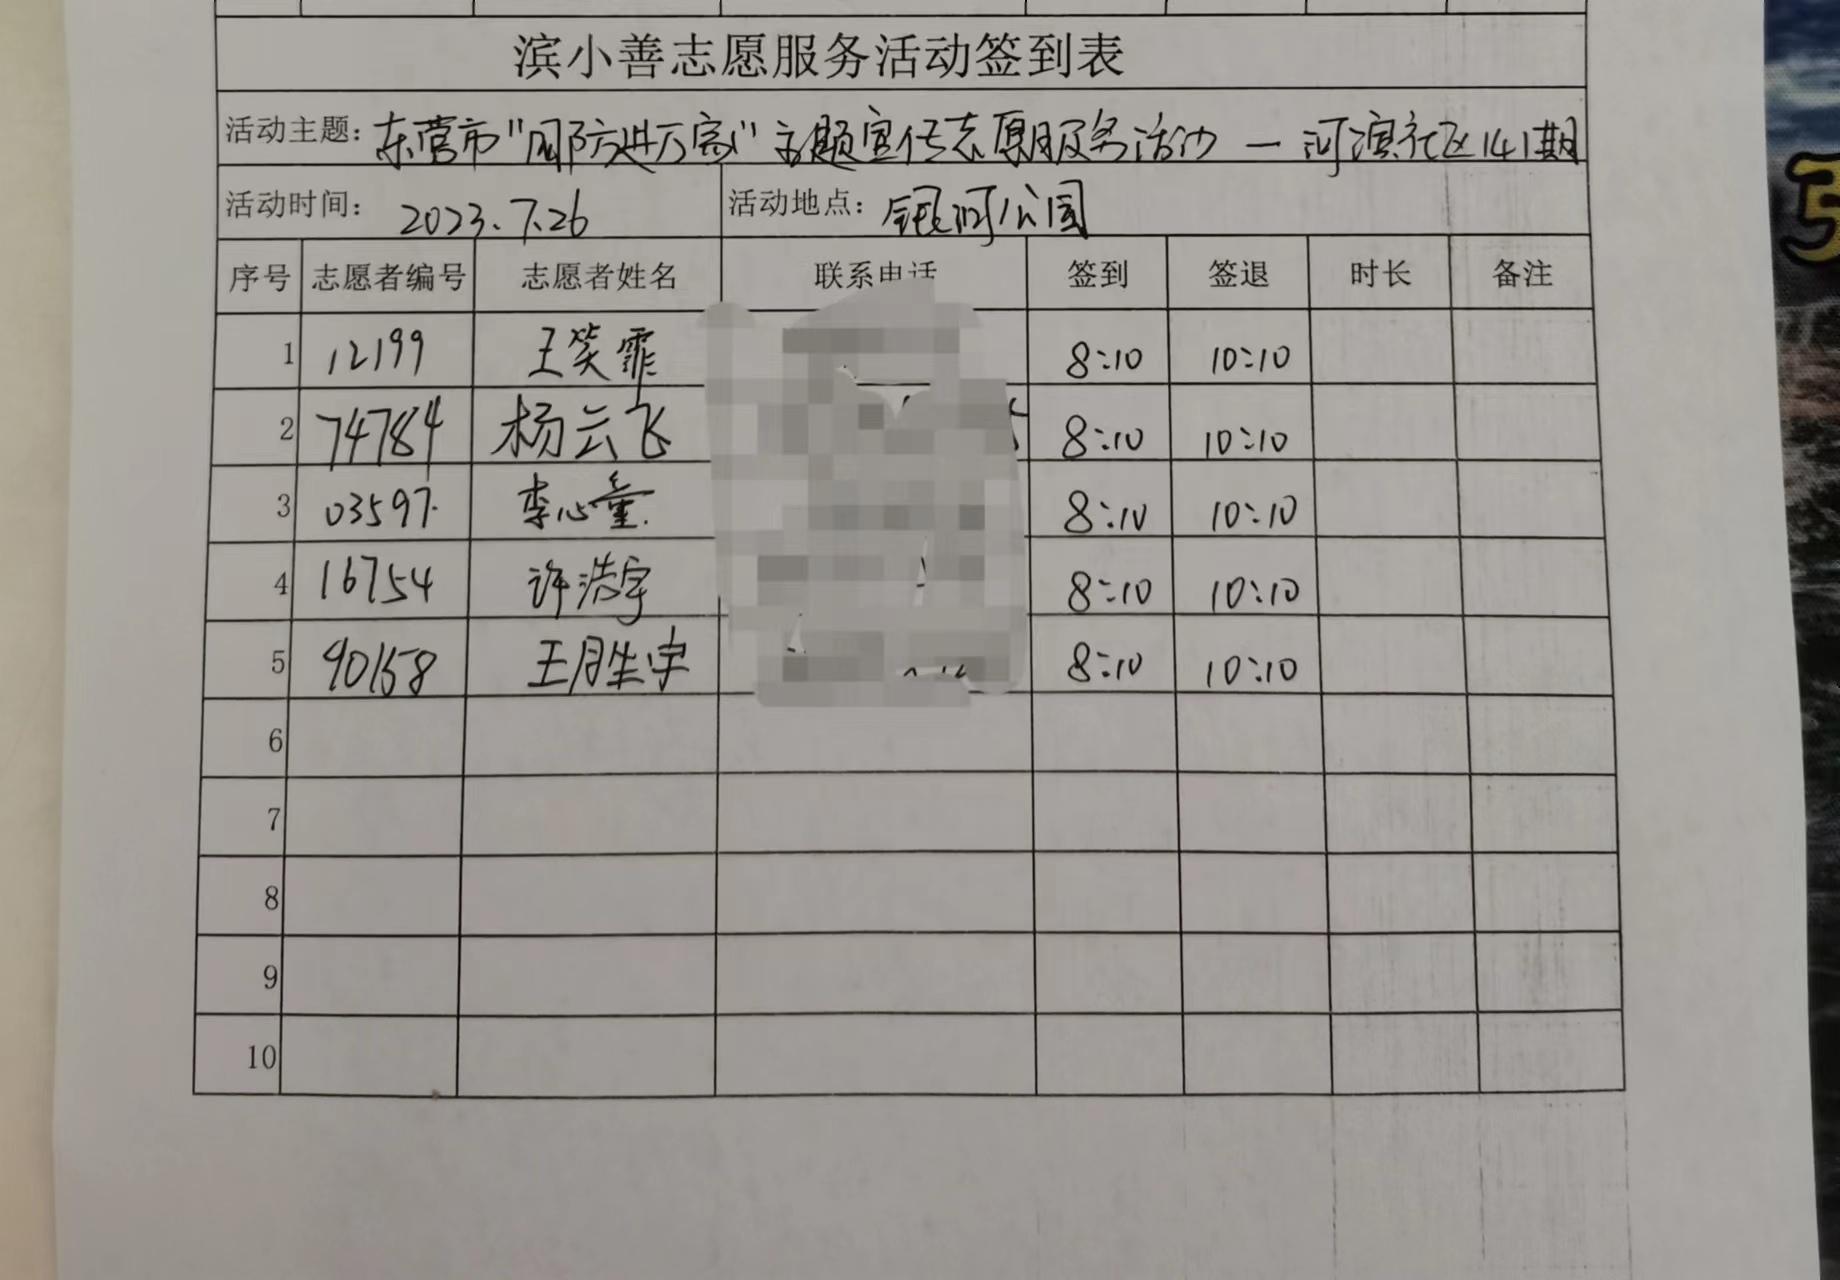 滨小善志愿服务活动签到表
活动主题: 东营市"国防进万家"主题宣传志愿服务活动 — 河滨社区141期
活动时间: 2023.7.26 活动地点: 银河公园
序号 志愿者编号 志愿者姓名 联系电话 签到 签退 时长 备注
1 12199 王笑霏 8:10 10:10
2 74784 杨云飞 8:10 10:10
3 03597 李心童 8:10 10:10
4 16754 许浩宇 8:10 10:10
5 90158 王胜宇 8:10 10:10
6
7
8
9
10